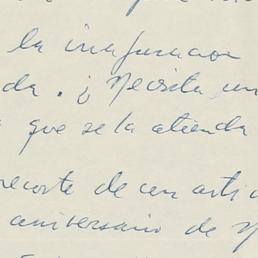 la informacion
da. ¿Necesita un
que se la atienda
recorte de un arti
aniversario de